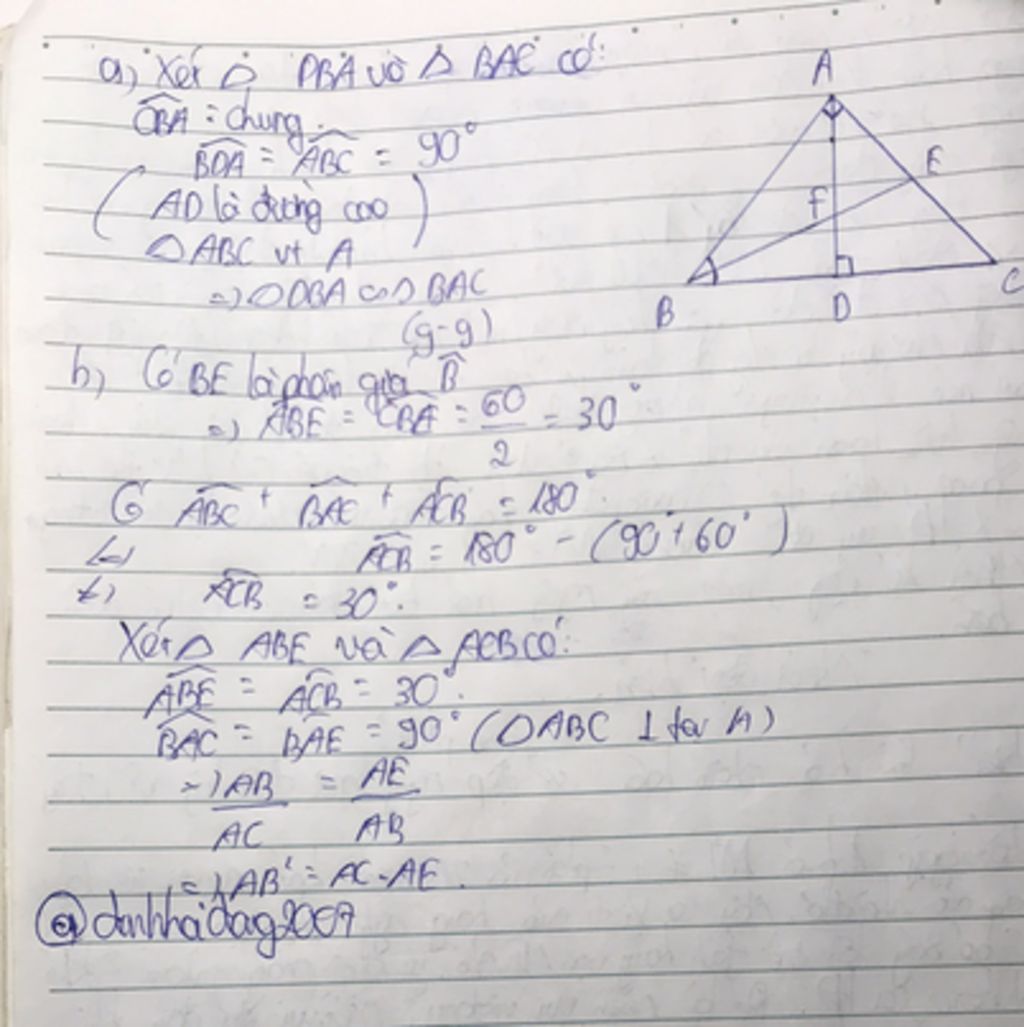 a) Xét △ DBA và △ BAC có:
DBA = chung.
BDA = ABC = 90°
(AD là đường cao)
△ABC vt A
=> △DBA ∽ △BAC
(g-g)
b) Có BE là phân giác B
=> ABE = CBE = 60/2 = 30°
Có ABC + BAC + ACB = 180°.
<=> ACB = 180° - (90° + 60°)
<=> ACB = 30°.
Xét △ ABE và △ ACB có:
ABE = ACB = 30°.
BAC = BAE = 90° (△ABC ⊥ tại A)
=> AB/AC = AE/AB
=> AB² = AC . AE.
A
E
F
B
D
C